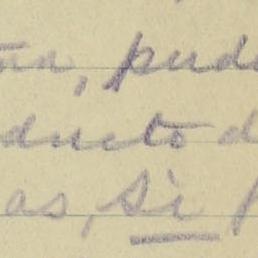 pud
ducto d
as, si